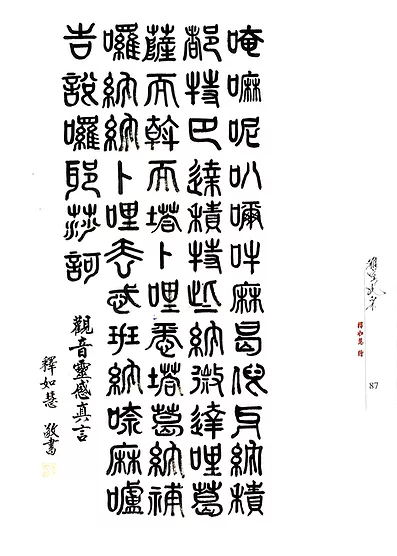 唵嘛呢叭吽麻曷倪牙納積
都特巴達積特些納微達哩葛
薩而斡而塔卜哩悉塔葛納補
囉納納卜哩丟忒班納麻嚧
吉說囉耶莎訶
觀音靈感真言
釋如慧 敬書
釋如慧 繪
87